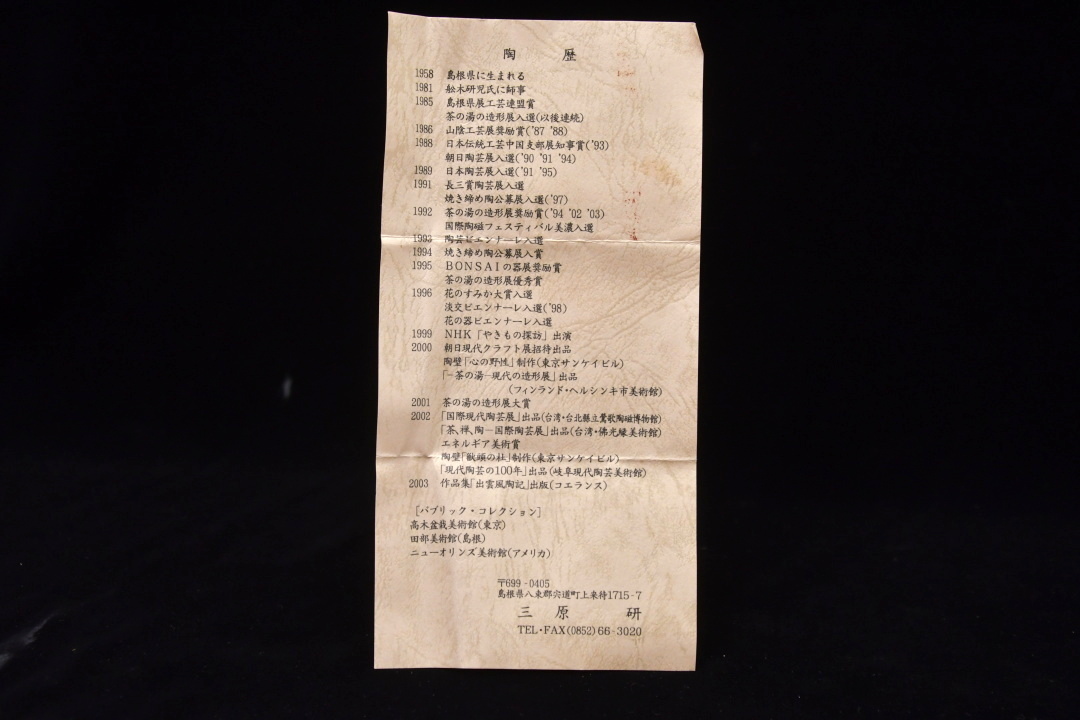 陶 歴
1958 島根県に生まれる
1981 舩木研児氏に師事
1985 島根県展工芸連盟賞
茶の湯の造形展入選(以後連続)
1986 山陰工芸展奨励賞('87 '88)
1988 日本伝統工芸中国支部展知事賞('93)
朝日陶芸展入選('90 '91 '94)
1989 日本陶芸展入選('91 '95)
1991 長三賞陶芸展入選
焼き締め陶公募展入選('97)
1992 茶の湯の造形展奨励賞('94 '02 '03)
国際陶磁フェスティバル美濃入選
1993 陶芸ビエンナーレ入選
1994 焼き締め陶公募展入賞
1995 BONSAIの器展奨励賞
茶の湯の造形展優秀賞
1996 花のすみか大賞入選
淡交ビエンナーレ入選('98)
花の器ビエンナーレ入選
1999 NHK「やきもの探訪」出演
2000 朝日現代クラフト展招待出品
陶壁「心の野性」制作(東京サンケイビル)
「-茶の湯-現代の造形展」出品
(フィンランド・ヘルシンキ市美術館)
2001 茶の湯の造形展大賞
2002 「国際現代陶芸展」出品(台湾・台北縣立鶯歌陶磁博物館)
「茶、禅、陶-国際陶芸展」出品(台湾・佛光縁美術館)
エネルギア美術賞
陶壁「獣頭の杜」制作(東京サンケイビル)
「現代陶芸の100年」出品(岐阜現代陶芸美術館)
2003 作品集「出雲風陶記」出版(コエランス)
[パブリック・コレクション]
高木盆栽美術館(東京)
田部美術館(島根)
ニューオリンズ美術館(アメリカ)
〒699-0405
島根県八束郡宍道町上来待1715-7
三原 研
TEL・FAX(0852)66-3020